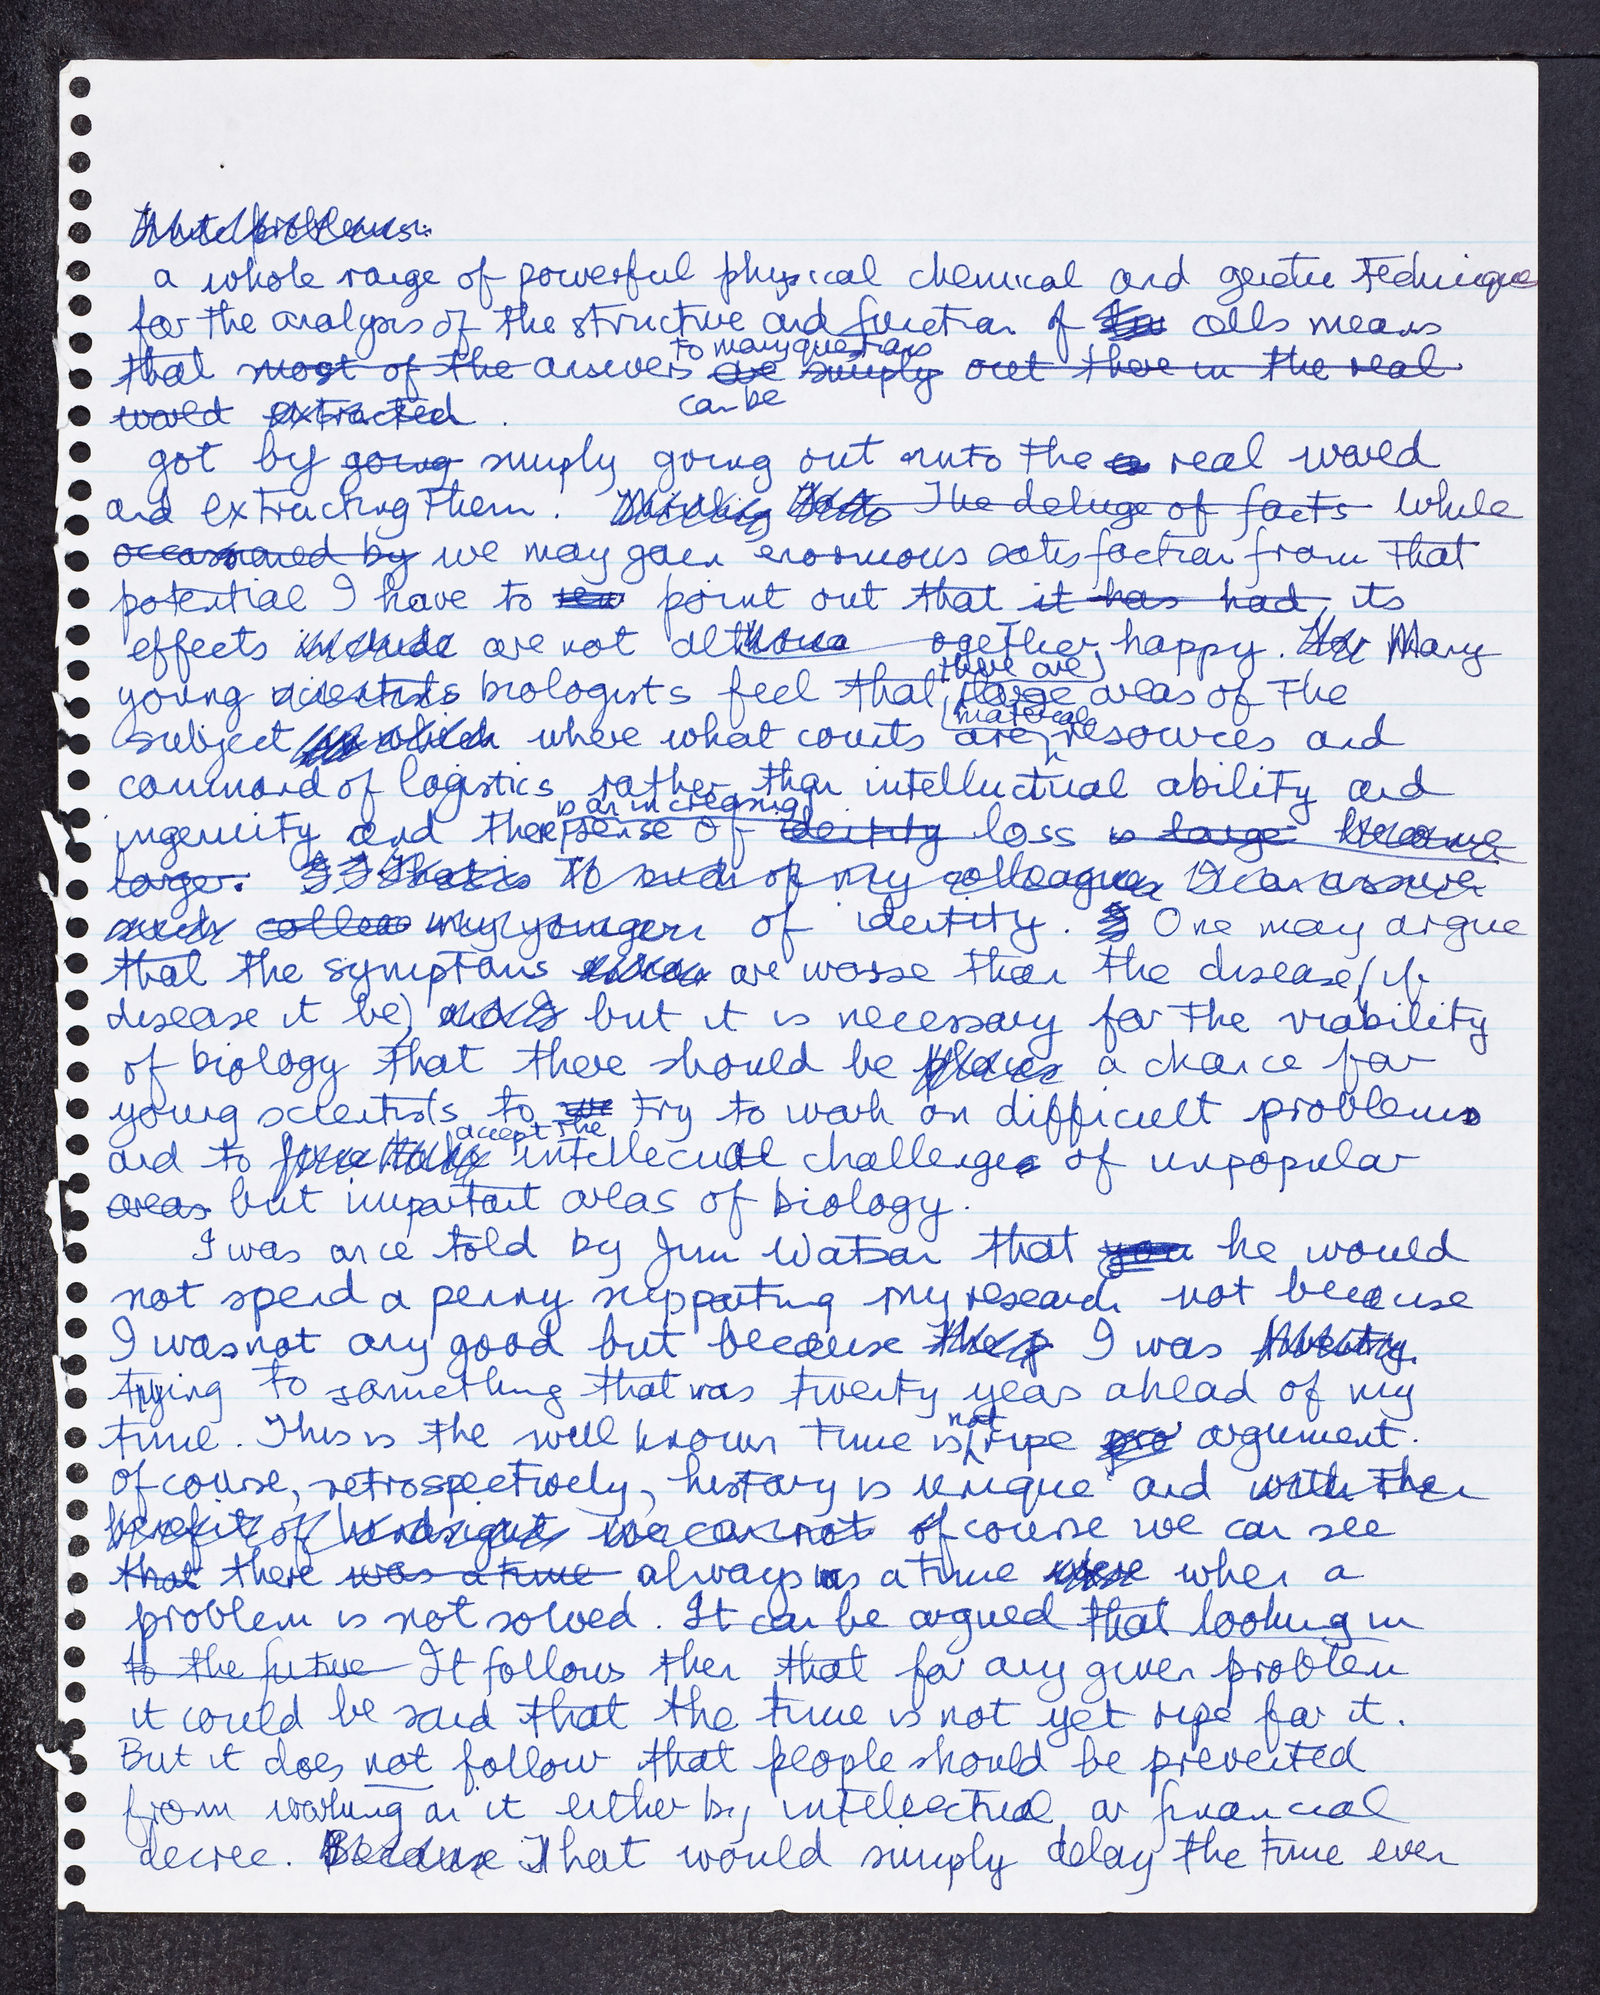 a whole range of powerful physical chemical and genetic techniques
for the analysis of the structure and function of cells means
to many questions
that most of the answers are simply out there in the real
world extracted.
can be
got by going simply going out into the real world
and extracting them. The deluge of facts While
occasioned by we may gain enormous satisfaction from that
potential I have to point out that it has had, its
effects include are not altogether happy. Many
there are
young scientists biologists feel that large areas of the
material
subject in which where what counts are resources and
command of logistics rather than intellectual ability and
is an increasing
ingenuity and there sense of identity loss is large become
larger. To such of my colleagues I can answer
such my younger of identity. One may argue
that the symptoms are worse than the disease (if
disease it be) but it is necessary for the viability
of biology that there should be a chance for
young scientists to try to work on difficult problems
accept the
and to intellecual challenges of unpopular
areas but important areas of biology.
I was once told by Jim Watson that you he would
not spend a penny supporting my research not because
I was not any good but because I was twenty
trying to something that was twenty years ahead of my
not
time. This is the well known time is ripe argument.
Of course, retrospectively, history is unique and with the
benefit of hindsight we can not of course we can see
that there was a time always is a time where when a
problem is not solved. It can be argued that looking in
to the future It follows then that for any given problem
it could be said that the time is not yet ripe for it.
But it does not follow that people should be prevented
from working on it either by intellectual or financial
decree. Because That would simply delay the time even